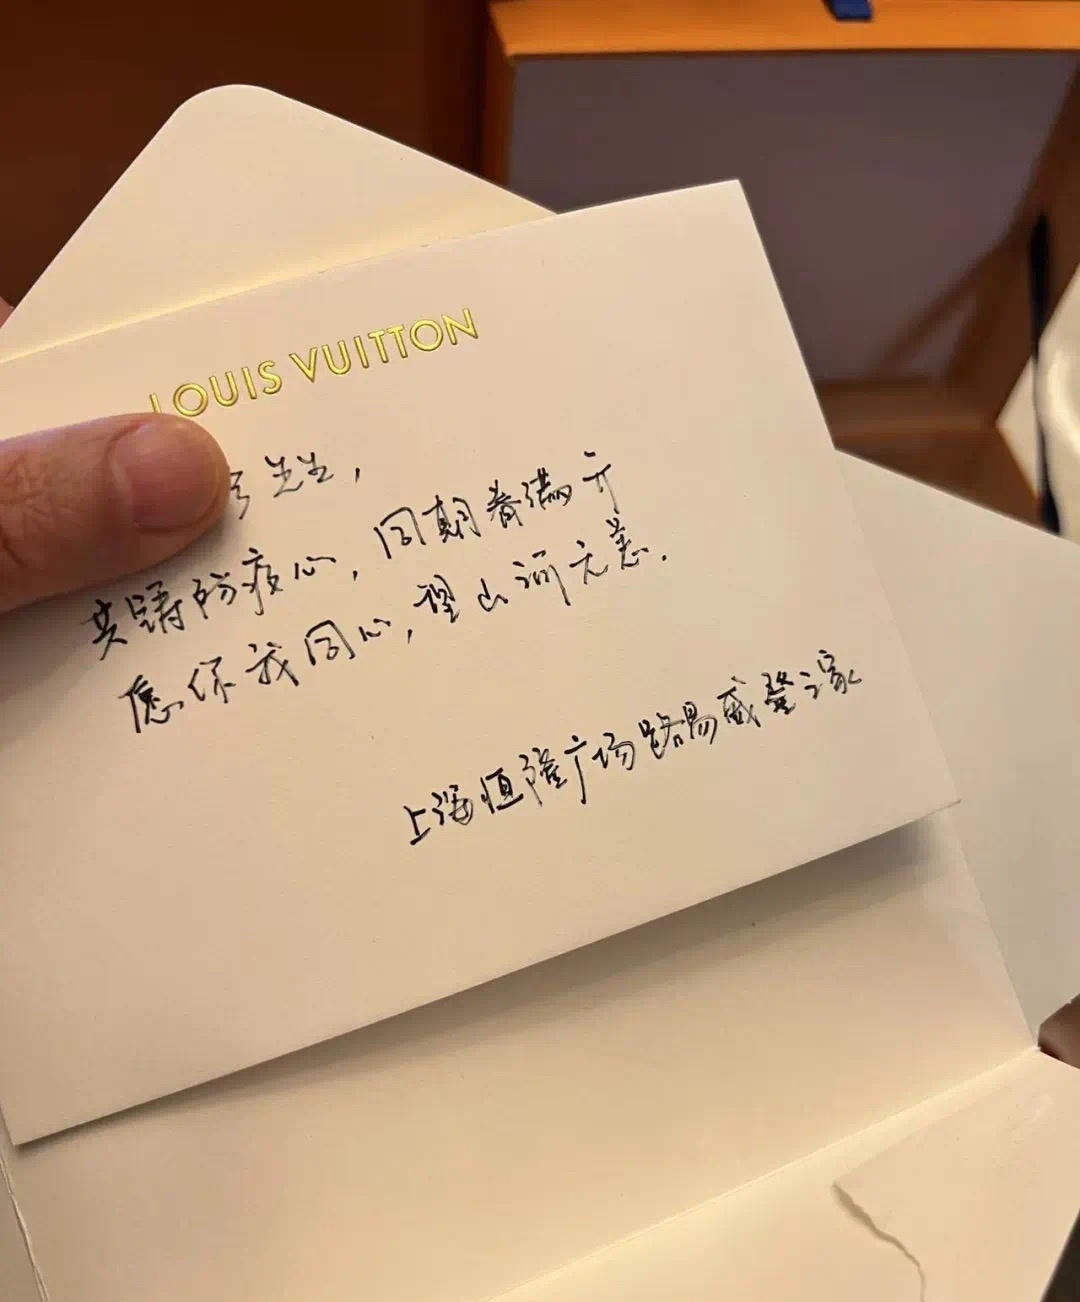 LOUIS VUITTON
先生，
共踌防疫心，同期春满开
愿你我同心，望山河无恙.
上海恒隆广场路易威登之家